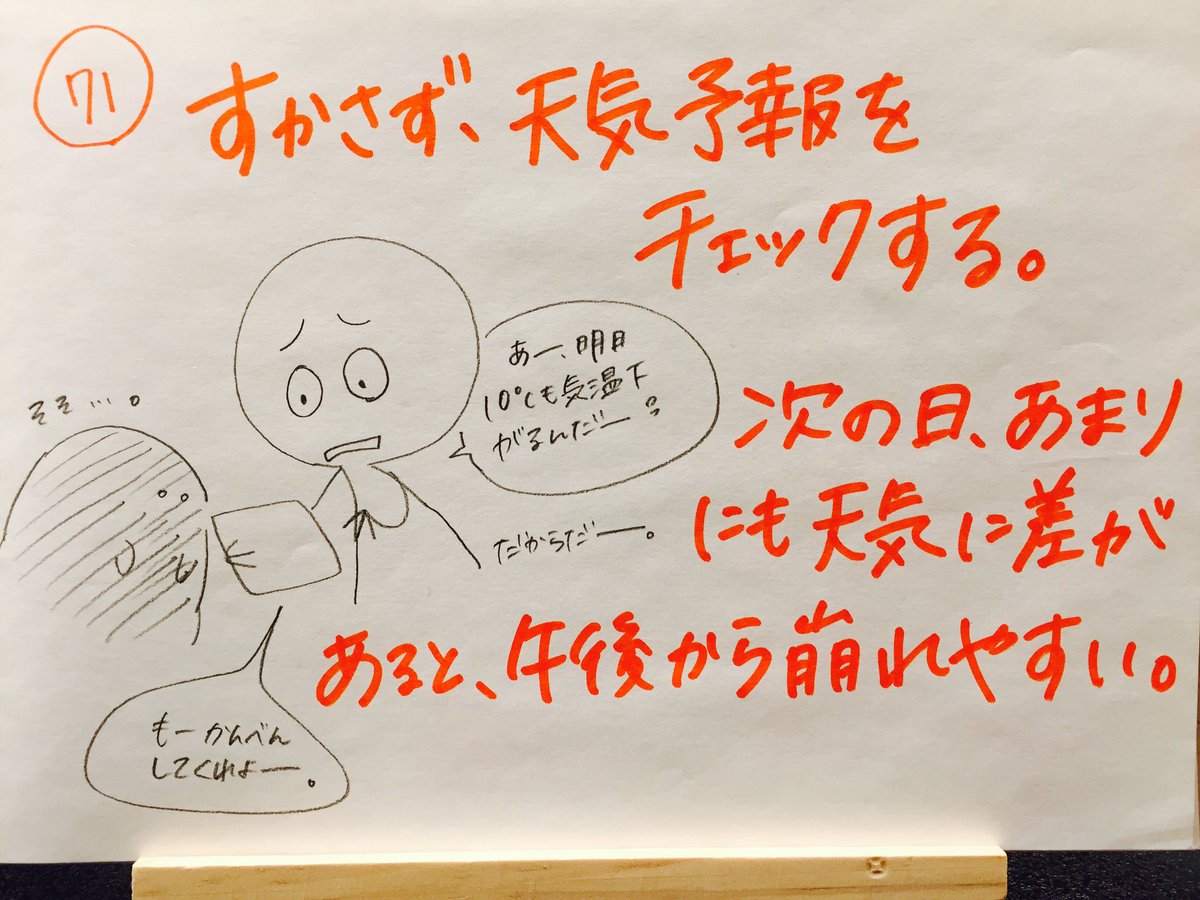 71
すかさず、天気予報を
チェックする。
あー、明日
10℃も気温下
がるんだー。
そそ…。
次の日、あまり
にも天気に差が
だからだー。
あると、午後から崩れやすい。
もーかんべん
してくれよー。